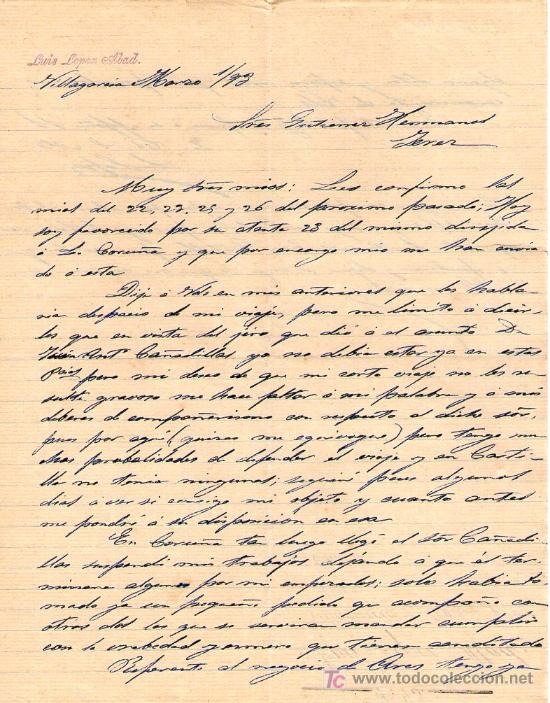 Luis Lopez Abad.
Villagarcia Marzo 1/98
Sres Gutierrez Hermanos
Jerez
Muy Sres mios: Les confirmo las
mias del 22, 23, 25 y 26 del proximo pasado; Hoy
soy favorecido por su atenta 28 del mismo dirigida
á La Coruña y que por encargo mio me han envia
do á esta
Dije á Vdes en mis anteriores que les habla
ria despacio de mi viaje, pero me limito á decir
les que en vista del giro que dió á el asunto Dn
Cañadillas ya no debia estar ya en este
Pais pero mi deseo de que mi corto viaje no les re
sulte gravoso me hace faltar á mi palabra y á mis
deberes de compañerismo con respecto al dicho sõr,
pues por aquí (quizas me equivoque) pero tengo mu
chas probabilidades de defender el viaje y en Casti
lla no tenia ningunas; seguiré pues algunos
dias á ver si consigo mi objeto y cuanto antes
me pondré á su disposicion en esa
En Coruña tan luego llegó el sor Cañadi
llas suspendí mis trabajos dejando á que él ter
minara algunos por mi empezados; solo habia to
mado ya un pequeño pedido que acompaño con
otros dos los que se serviran mandar cumplir
con la brevedad y esmero que tienen acreditado
Respecto al negocio de Ares tengo ya
TC todocoleccion
www.todocoleccion.net